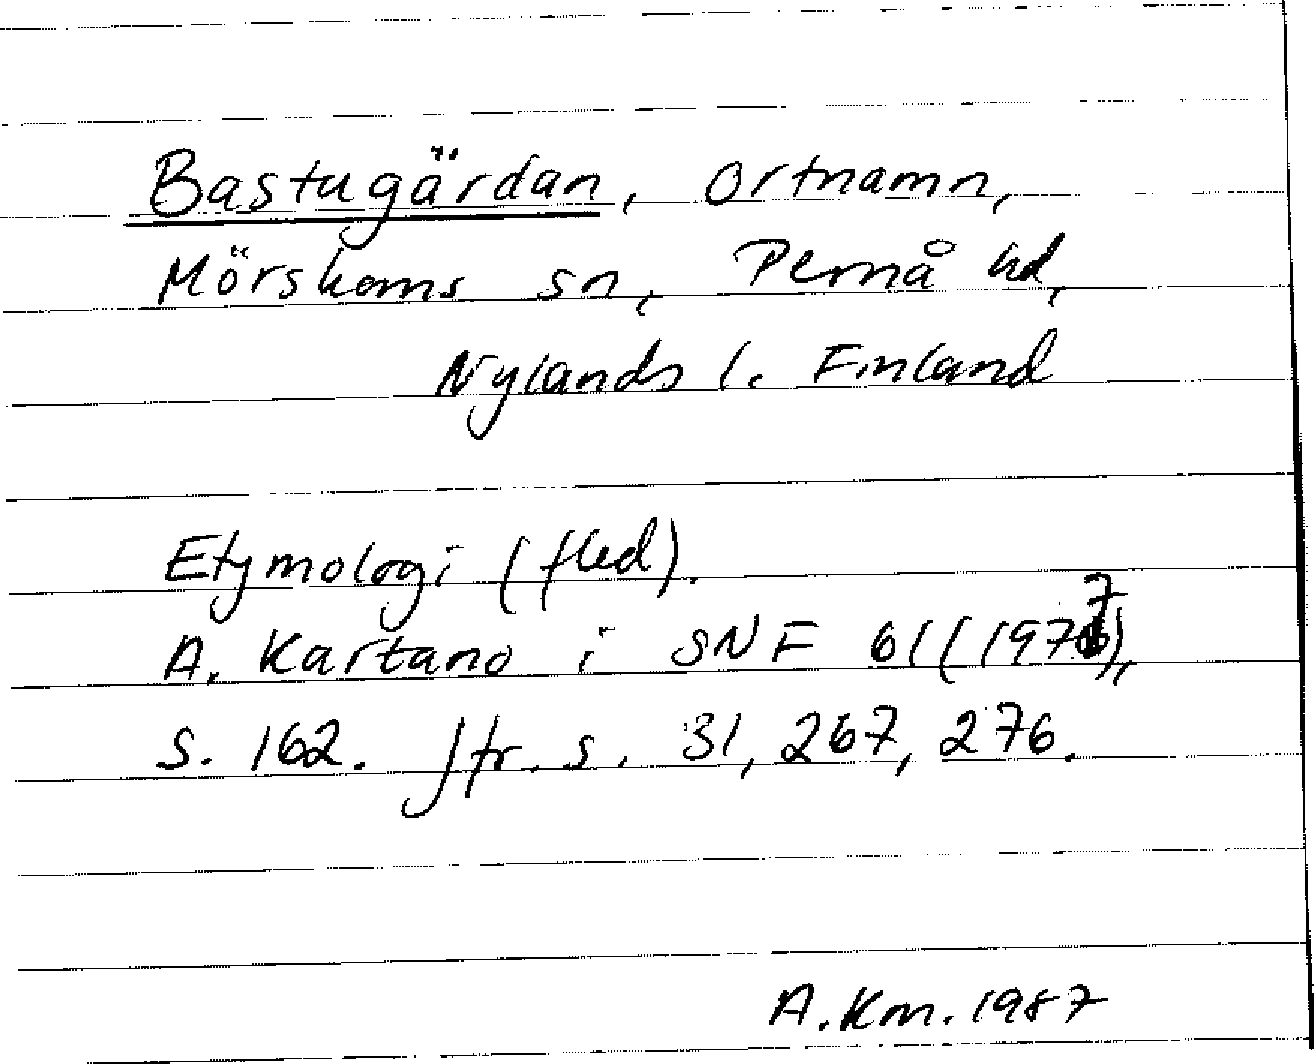 Bastugärdan, ortnamn,
Mörskoms sn, Pernå hd,
Nylands l. Finland
Etymologi (fled).
A. Kartano i SNF 61 (1977),
s. 162. Jfr. s. 31, 267, 276.
A.Km. 1987